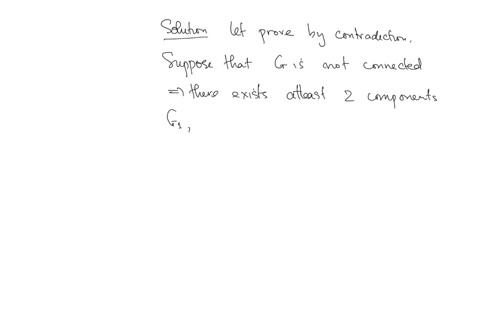 Solution let prove by contradiction.
Suppose that G is not connected
⇒ there exists atleast 2 components
G₁,